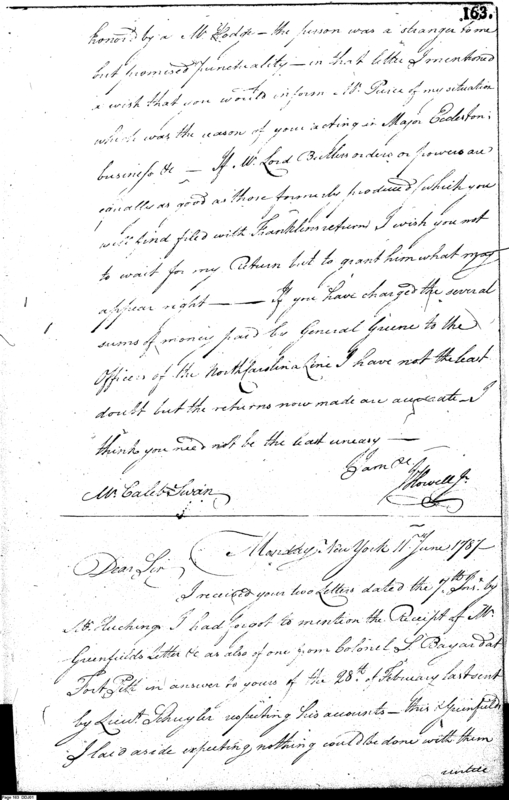 163.
honored by a Mr. Hodge — the person was a stranger to me
but promised punctuality — in that letter I mentioned
a wish that you would inform Mr. Pierce of my situation
which was the reason of your acting in Major Eccleston's
business &c — If Mr. Lord Butlers orders or powers are
equally as good as those formerly produced (which you
will find filed with Franklins return I wish you not
to wait for my Return but to grant him what may
appear right —— If you have charged the several
sums of money paid by General Greene to the
Officers of the North Carolina Line I have not the least
doubt but the returns now made are accurate — I
think you need not be the least uneasy —
I am &c
J Howell Jr.
Mr. Caleb Swan
Monday New York 11th June 1787
Dear Sir
I received your two Letters dated the 7th Ins. by
Mr. I had forgot to mention the Receipt of Mr.
Greenfields Letter &c as also of one from Colonel S. Bayard at
Fort Pitt in answer to yours of the 28th of February last sent
by Lieut. Schuyler respecting his accounts — this & Greenfields
I laid aside expecting nothing could be done with them
untill
Page 163 DDJ01